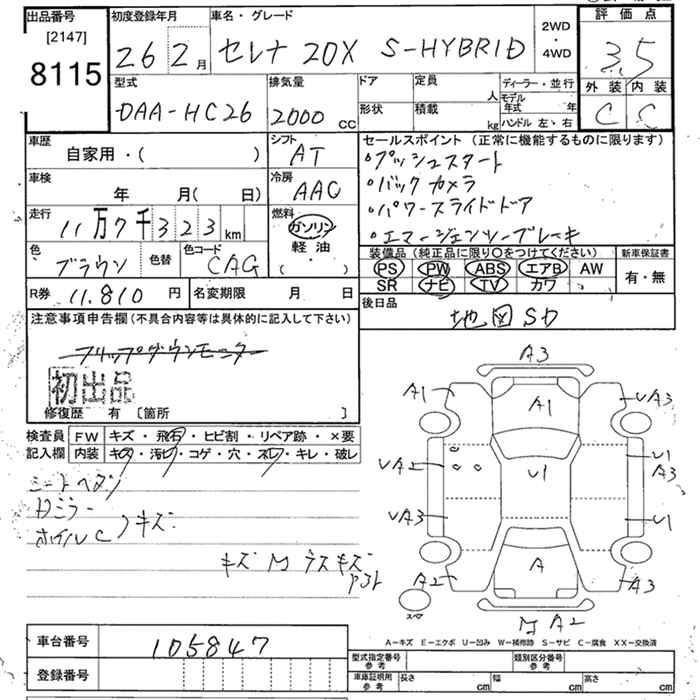 出品番号
[2147]
8115
初度登録年月
26 2月
車名・グレード
セレナ 20X S-HYBRID
2WD
・
4WD
評価点
3.5
外装 内装
C C
型式
DAA-HC26
排気量
2000 cc
ドア
形状
定員
人
積載
kg
ディーラー・並行
モデル
年式 年
ハンドル 左・右
車歴
自家用・( )
シフト
AT
セールスポイント (正常に機能するものに限ります)
・プッシュスタート
・バックカメラ
・パワースライドドア
・エマージェンシーブレーキ
車検
年 月( 日)
冷房
AAC
走行
11万7千323km
燃料
ガソリン
軽油
( ・ )
色
ブラウン
色替
色コード
CAG
装備品 (純正品に限り○をつけてください)
PS PW ABS エアB AW
SR ナビ TV カワ
新車保証書
有・無
R券 11.810 円
名変期限 月 日
後日品
地図SD
注意事項申告欄 (不具合内容等は具体的に記入して下さい)
フリップダウンモニター
初出品
修復歴 有 [箇所 ]
検査員
記入欄
FW キズ・飛石・ヒビ割・リペア跡・×要
内装 キズ・汚れ・コゲ・穴・スレ・キレ・破レ
シートヘタリ
Dミラー
ホイルC
キズ
キズ M ラスキズ
A3
A1
A1
UA3
UA2
U1
U1
A3
UA3
U1
A2
A
A3
スペア
M A2
A-キズ E-エクボ U-凹み W-補修跡 S-サビ C-腐食 XX-交換済
車台番号
105847
登録番号
型式指定番号
参考
類別区分番号
参考
車庫証明用
参考
長さ cm
幅 cm
高さ cm